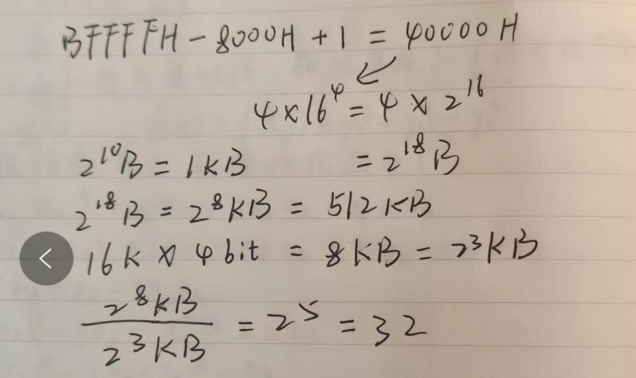 BFFFFH - 8000H + 1 = 40000H
4×16⁴ = 4 × 2¹⁶
2¹⁰B = 1KB = 2¹⁸B
2¹⁸B = 2⁸KB = 512KB
16K × 4bit = 8KB = 2³KB
2⁸KB / 2³KB = 2⁵ = 32